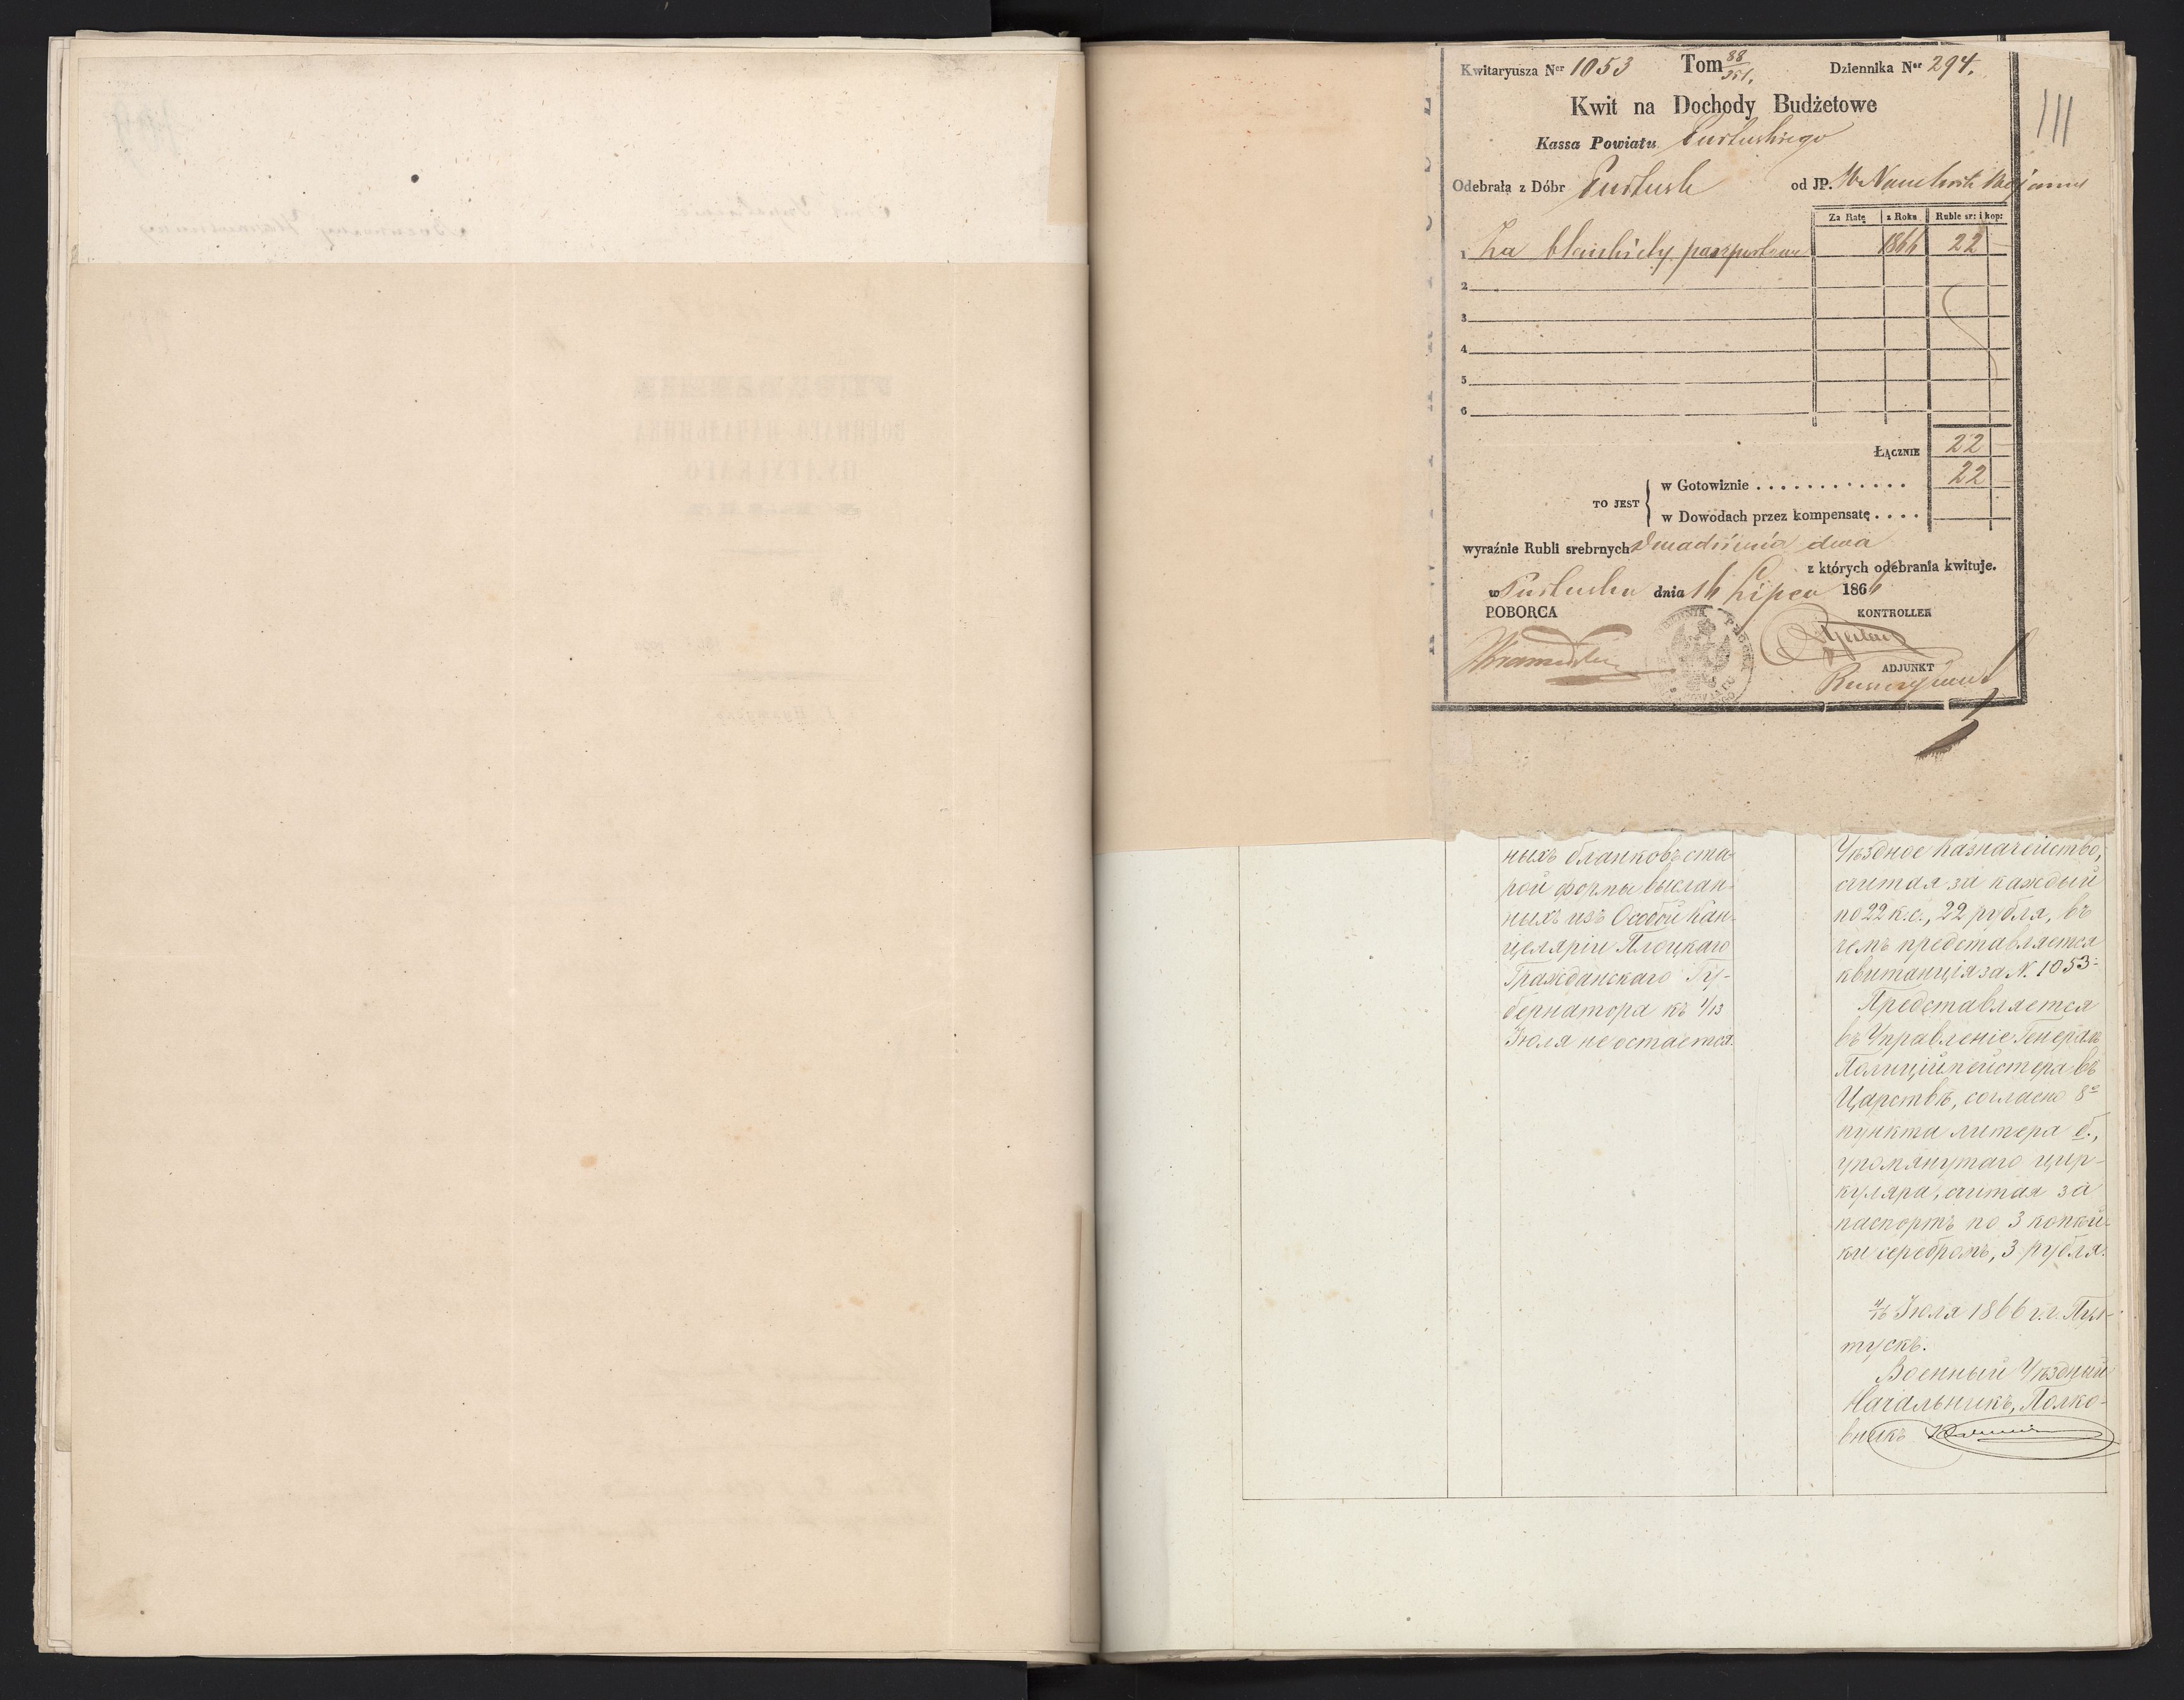 Kwitaryusza Ner 1053 Tom 88/351. Dziennika Ner 294.
111
Kwit na Dochody Budżetowe
Kassa Powiatu Pułtuskiego
Odebrała z Dóbr Pułtusk od JP. W Naczelnik Wojenny
Za Ratę z Roku Ruble sr: i kop:
1 Za blankiety paszportowe 1866 22 —
2
3
4
5
6
ŁĄCZNIE 22 —
TO JEST w Gotowiznie . . . . . . . . . . . . 22 —
w Dowodach przez kompensatę . . . .
wyraźnie Rubli srebrnych Dwadzieścia dwa
z których odebrania kwituje.
w Pułtusku dnia 16 Lipca 1866
POBORCA KONTROLLER
ADJUNKT
ныхъ бланковъ ста-
рой формы выслан-
ныхъ изъ Особой Кан-
целяріи Плоцкаго
Гражданскаго Гу-
бернатора къ 1/13
Іюля не остается.
Уѣздное Казначейство,
считая за каждый
по 22 к.с., 22 рубля, въ
чемъ представляется
квитанція за N. 1053.
Представляется
въ Управленіе Генералъ
Полиціймейстера въ
Царствѣ, согласно 8го
пункта литера б.,
упомянутаго цир-
куляра, считая за
паспортъ по 3 копѣй-
ки серебромъ, 3 рубля.
4/16 Іюля 1866 г. г. Пул-
тускъ.
Военный Уѣздный
Начальникъ, Полко-
вникъ